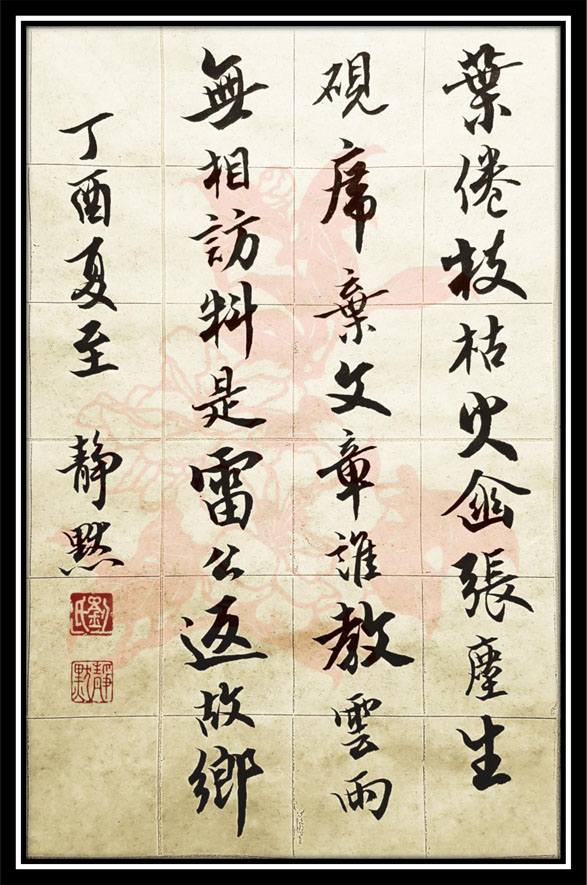 葉倦枝枯火傘張塵生
硯席棄文章誰教雲雨
無相訪料是雷公返故鄉
丁酉夏至 靜默
劉氏
靜默